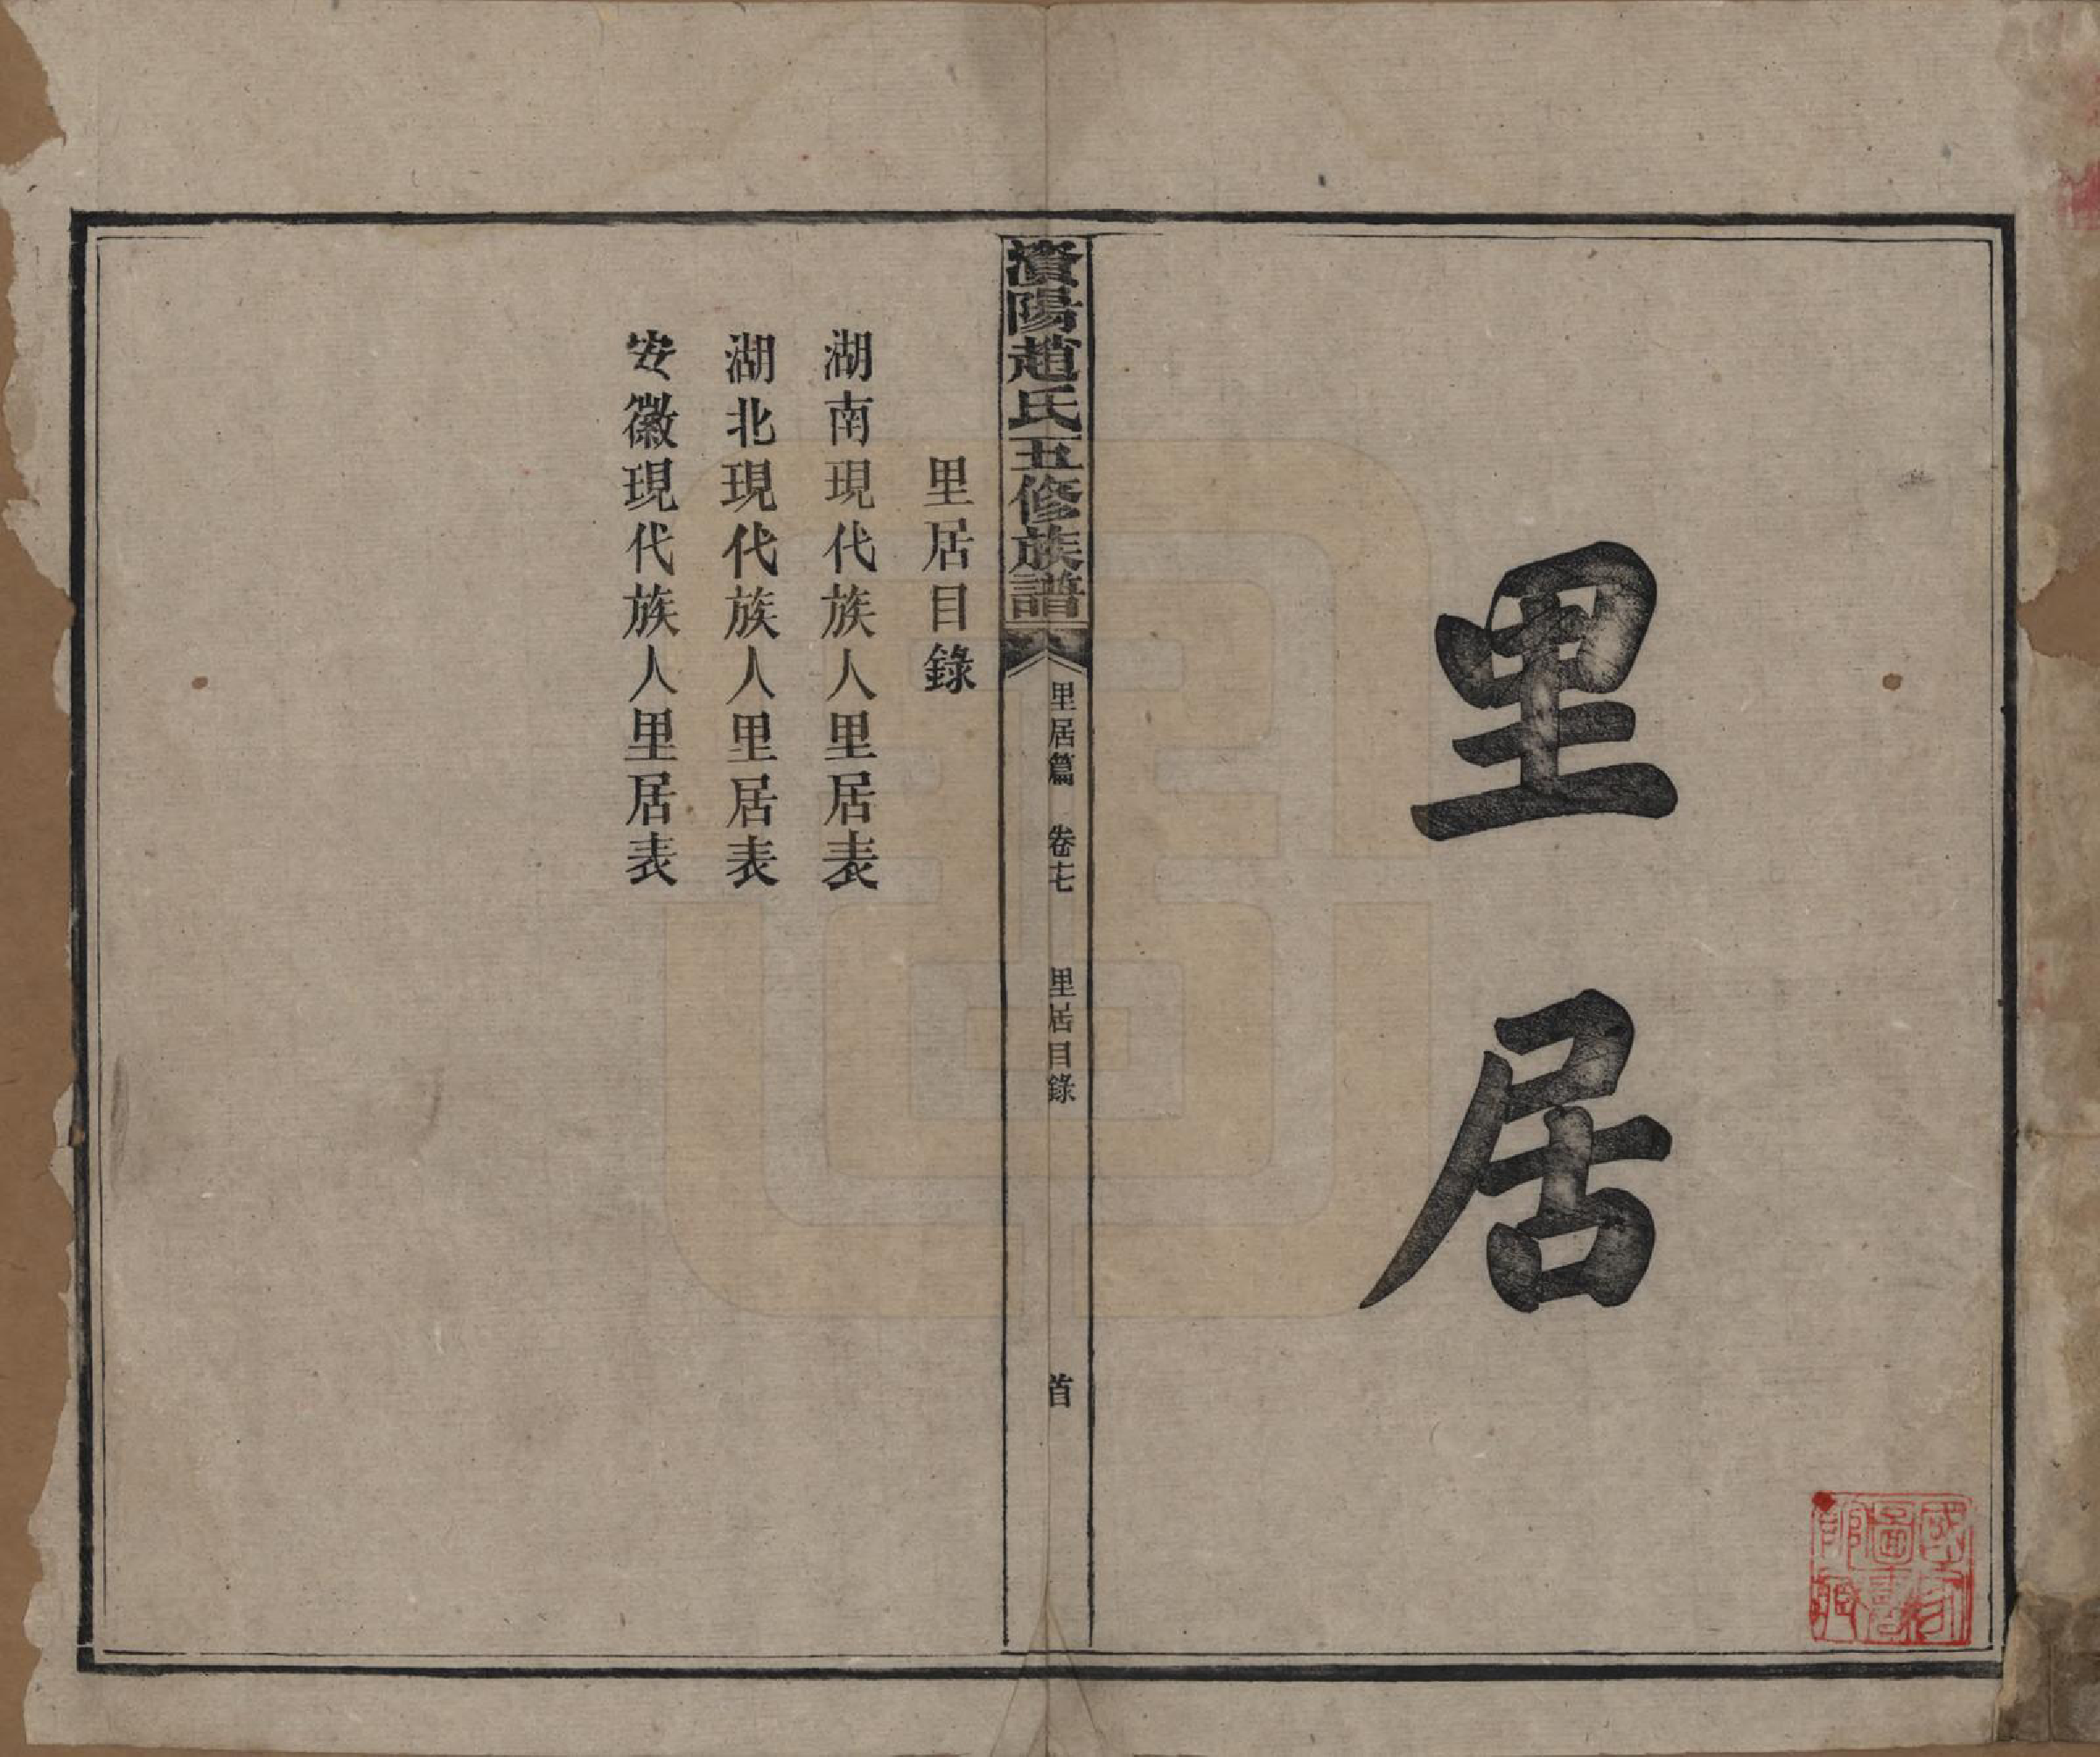 里居
國家
圖書
館藏
濱陽趙氏五修族譜
里居篇 卷十七 里居目錄 首
里居目錄
湖南現代族人里居表
湖北現代族人里居表
安徽現代族人里居表